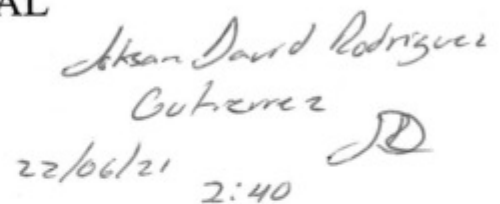 AL
David Rodriguez
Gutierrez
22/06/21
2:40